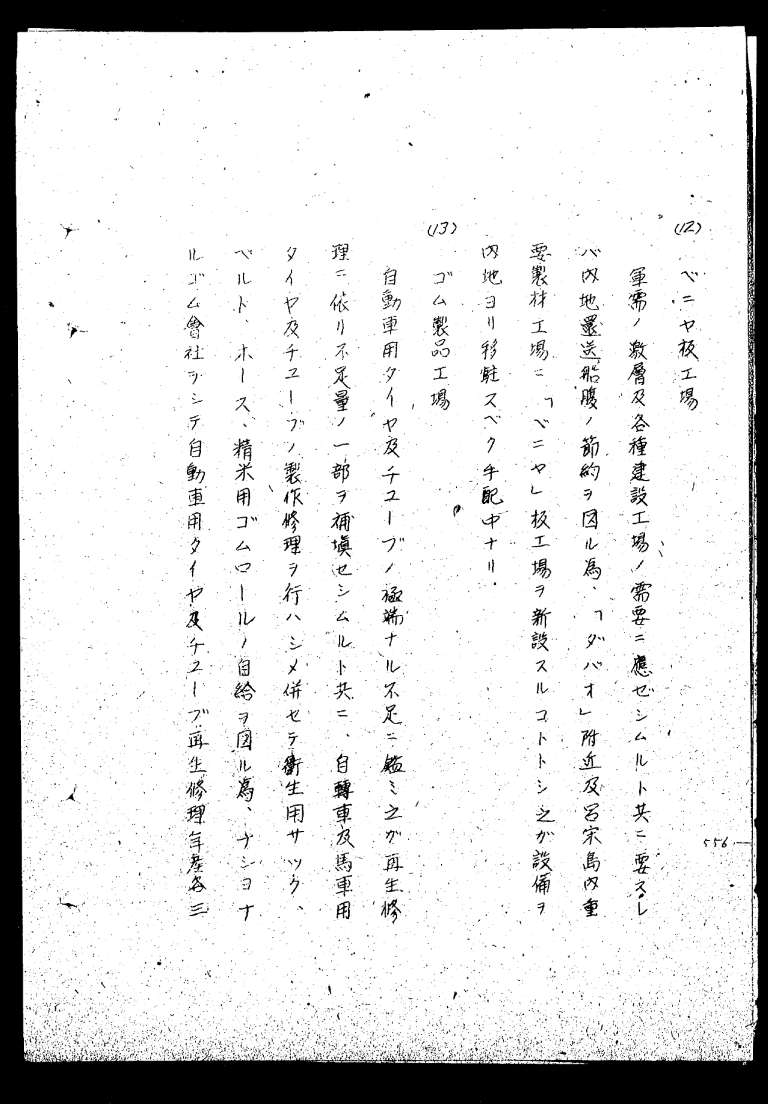 (12) ベニヤ板工場
軍需ノ激層及各種建設工場ノ需要ニ應ゼシムルト共ニ要スレ
バ内地還送船腹ノ節約ヲ図ル為、「ダバオ」附近及呂宋島内重
要製材工場ニ「ベニヤ」板工場ヲ新設スルコトトシ之ガ設備ヲ
内地ヨリ移駐スベク手配中ナリ.
(13) ゴム製品工場
自動車用タイヤ及チユーブノ極端ナル不足ニ鑑ミ之ガ再生修
理ニ依リ不足量ノ一部ヲ補塡セシムルト共ニ、自轉車及馬車用
タイヤ及チユーブノ製作修理ヲ行ハシメ併セテ衞生用サツク、
ベルト、ホース、精米用ゴムロールノ自給ヲ図ル為、ナシヨナ
ルゴム會社ヲシテ自動車用タイヤ及チユーブ再生修理年産各三
556